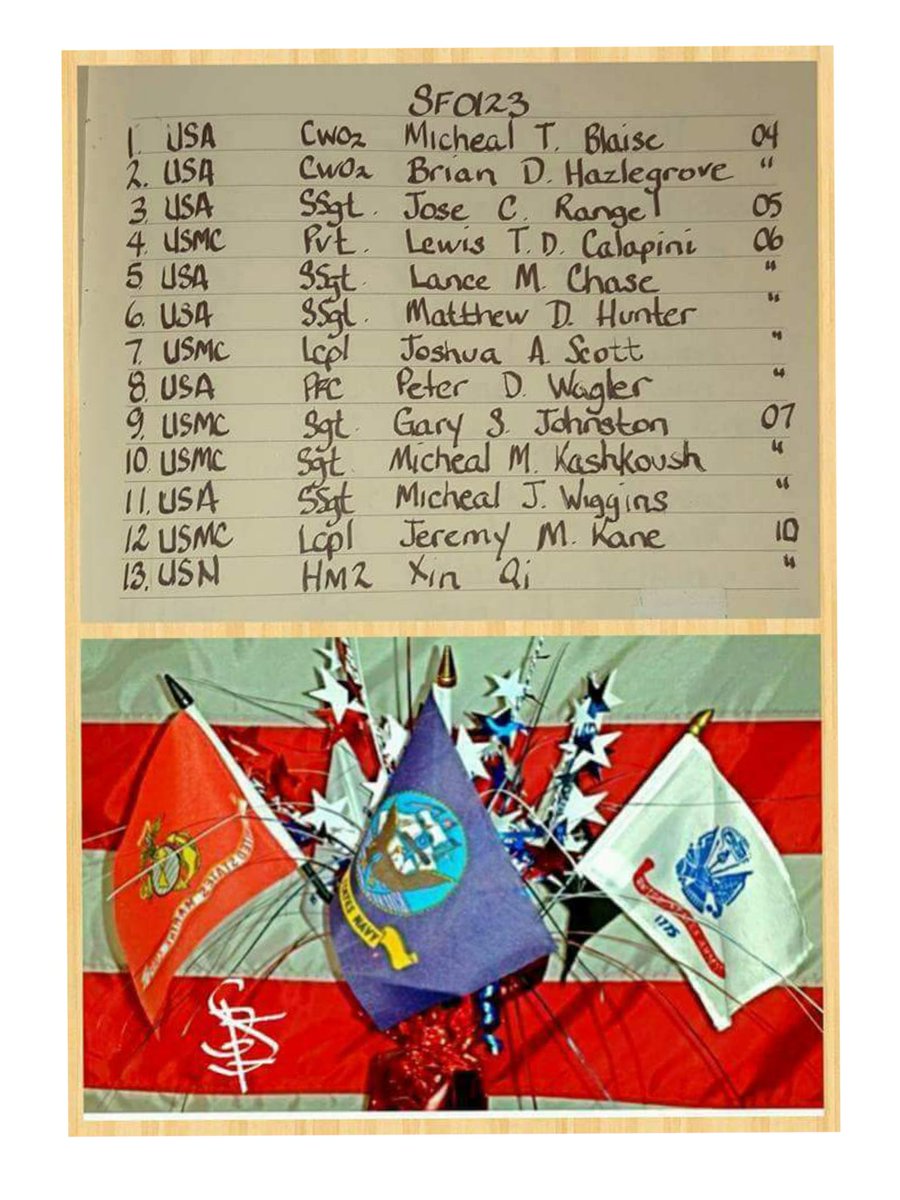 SF0123
1. USA CWO2 Micheal T. Blaise 04
2. USA CWO2 Brian D. Hazlegrove "
3. USA SSgt. Jose C. Rangel 05
4. USMC Pvt. Lewis T.D. Calapini 06
5. USA SSgt. Lance M. Chase "
6. USA SSgt. Matthew D. Hunter "
7. USMC Lcpl Joshua A. Scott "
8. USA PFC Peter D. Wagler "
9. USMC Sgt. Gary S. Johnston 07
10. USMC Sgt. Micheal M. Kashkoush "
11. USA SSgt Micheal J. Wiggins "
12. USMC Lcpl Jeremy M. Kane 10
13. USN HM2 Xin Qi "
STATES MARINE
STATES NAVY
1775